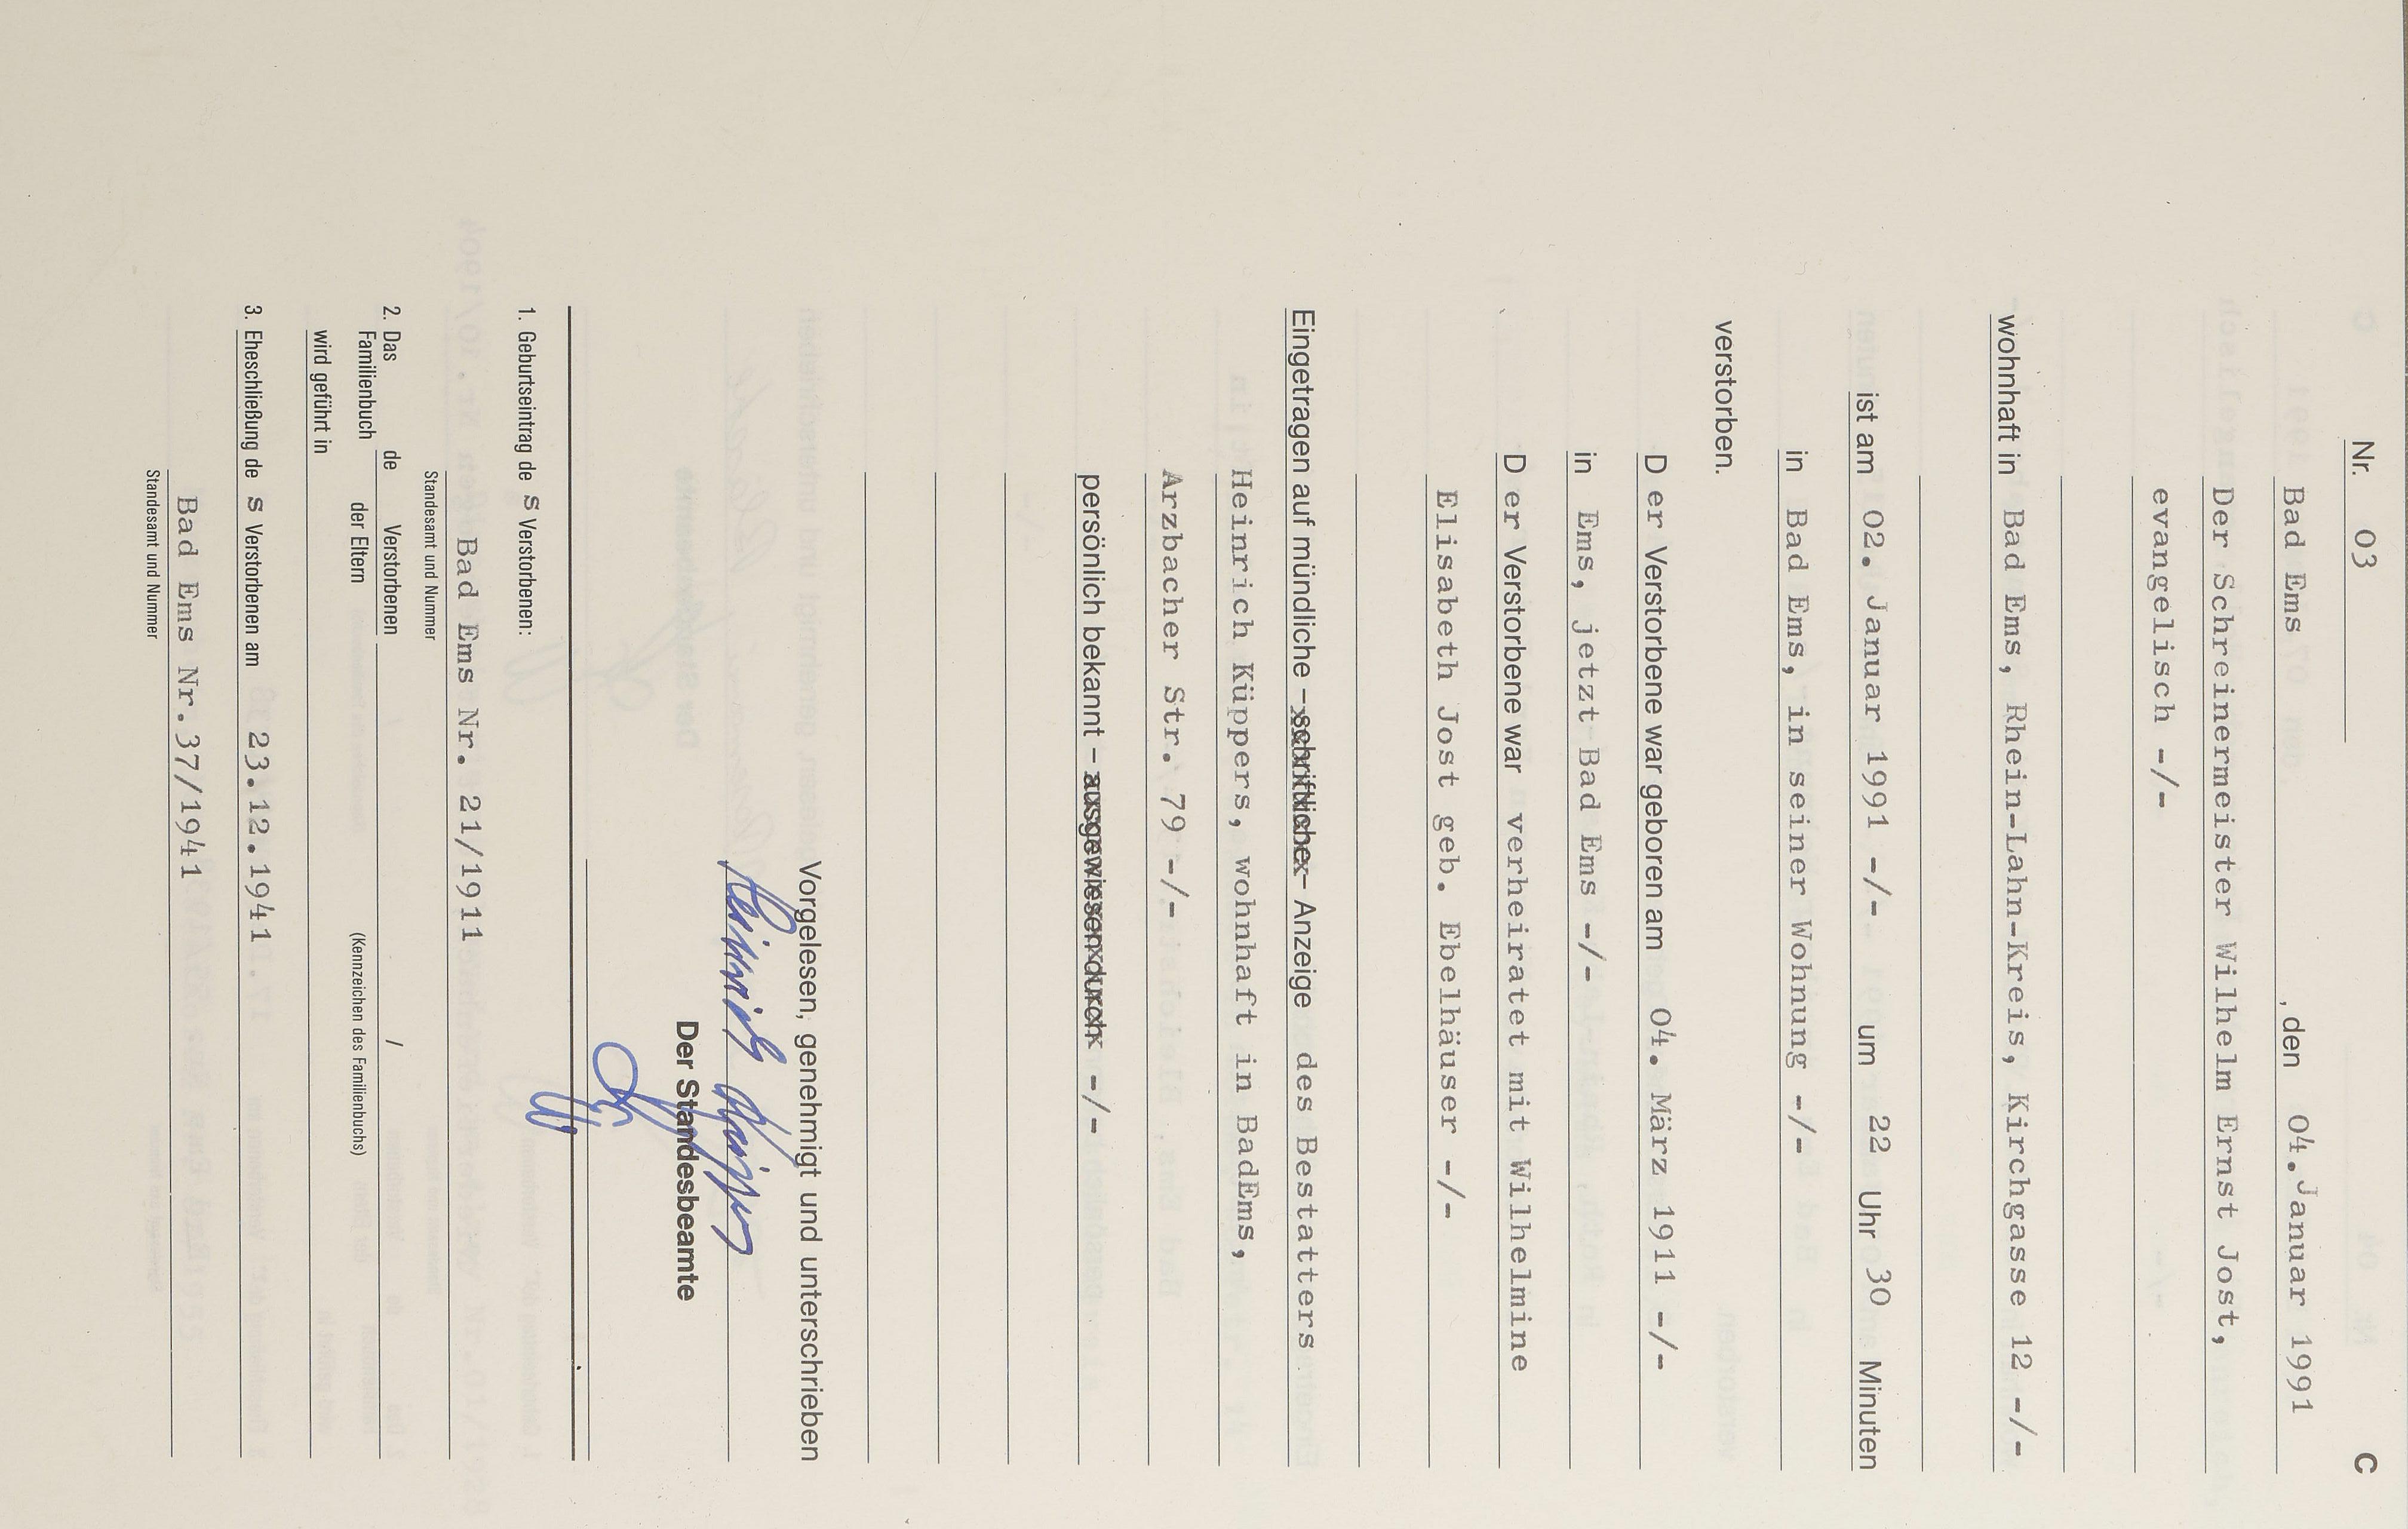 Nr. 03 C
Bad Ems , den 04. Januar 1991
Der Schreinermeister Wilhelm Ernst Jost,
evangelisch -/-
wohnhaft in Bad Ems, Rhein-Lahn-Kreis, Kirchgasse 12 -/-
ist am 02. Januar 1991 -/- um 22 Uhr 30 Minuten
in Bad Ems, in seiner Wohnung -/-
verstorben.
D er Verstorbene war geboren am 04. März 1911 -/-
in Ems, jetzt Bad Ems -/-
D er Verstorbene war verheiratet mit Wilhelmine
Elisabeth Jost geb. Ebelhäuser -/-
Eingetragen auf mündliche – schriftliche – Anzeige des Bestatters
Heinrich Küppers, wohnhaft in BadEms,
Arzbacher Str. 79 -/-
persönlich bekannt – ausgewiesen durch -/-
Vorgelesen, genehmigt und unterschrieben
Heinrich Küppers
Der Standesbeamte
1. Geburtseintrag de s Verstorbenen:
Bad Ems Nr. 21/1911
Standesamt und Nummer
2. Das de Verstorbenen /
Familienbuch der Eltern (Kennzeichen des Familienbuchs)
wird geführt in
3. Eheschließung de s Verstorbenen am 23.12.1941
Bad Ems Nr.37/1941
Standesamt und Nummer